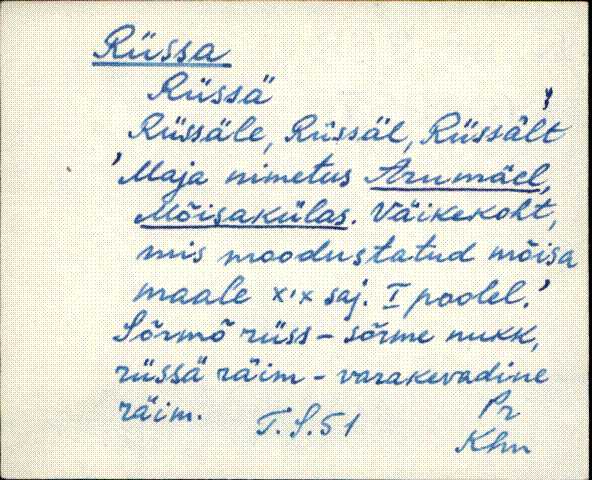 Rüssa
Rüssä
Rüssäle, Rüssäl, Rüssält
'Maja nimetus Arumäel,
Mõisakülas. Väikekoht,
mis moodustatud mõisa
maale XIX saj. I poolel.'
Sõrmõ rüss - sõrme nukk,
rüssä räim - varakevadine
räim. T.S.51 Pr
Khn